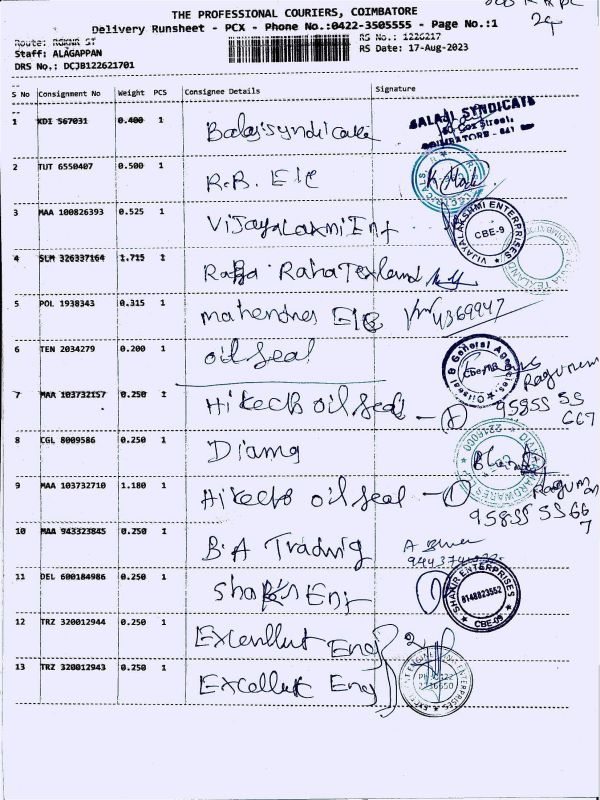 THE PROFESSIONAL COURIERS, COIMBATORE
Delivery Runsheet - PCX - Phone No.:0422-3505555 - Page No.:1
24
Route: RGKNR ST
RS No.: 1226217
Staff: ALAGAPPAN
RS Date: 17-Aug-2023
DRS No.: DCJB122621701
S No Consignment No Weight PCS Consignee Details Signature
1 KDI 567031 0.400 1 Balajisyndicate
BALAJI SYNDICATE
COIMBATORE - 641
2 TUT 6550407 0.500 1 R.B. Ele
3 MAA 100826393 0.525 1 VijayaLaxmi Ent
VIJAYALAKSHMI ENTERPRISES
CBE-9
4 SLM 326337164 1.715 1 Raja Raha Texland
5 POL 1938343 0.315 1 mahendras Ele 4369947
6 TEN 2034279 0.200 1 oil seal
Oilseal & General Agencies
7 MAA 103732157 0.250 1 Hitech oil seals
95855 55
667
8 CGL 8009586 0.250 1 Diamg
HARDWARES
9 MAA 103732710 1.180 1 Hitech oil seal
95855 5566
7
10 MAA 943323845 0.250 1 B.A Trading
11 DEL 600184986 0.250 1 Shakir Ent
SHAKIR ENTERPRISES
8148823552
CBE-09
12 TRZ 320012944 0.250 1 Excellent Eng
13 TRZ 320012943 0.250 1 Excellent Eng